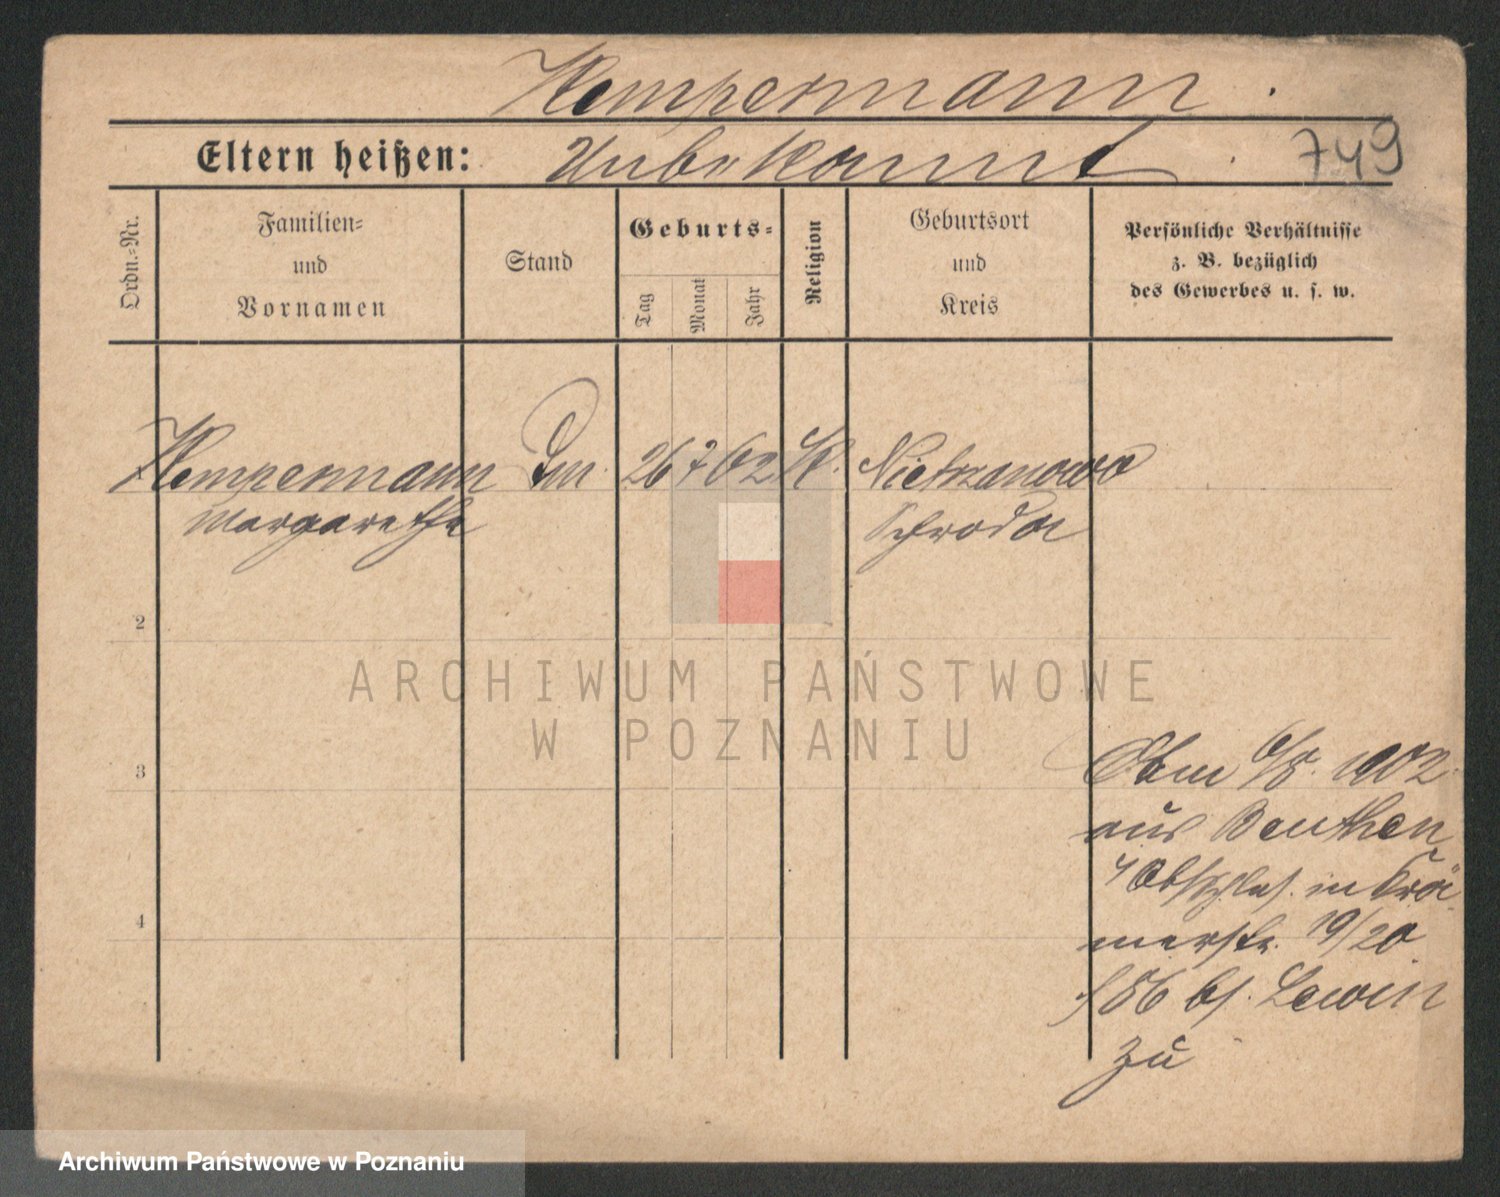 Kempermann
Eltern heißen: Unbekannt
749
Ordn.=Nr.
Familien=
und
Vornamen
Stand
Geburts=
Tag
Monat
Jahr
Religion
Geburtsort
und
Kreis
Persönliche Verhältnisse
z. B. bezüglich
des Gewerbes u. s. w.
Kempermann 26 7 62 K. Nietrzanowo
Margarethe Schroda
2
3
4
ARCHIWUM PAŃSTWOWE
W POZNANIU
6/8. 1902
aus Beuthen
in Krä
merstr. 19/20
Lewin
zu
Archiwum Państwowe w Poznaniu